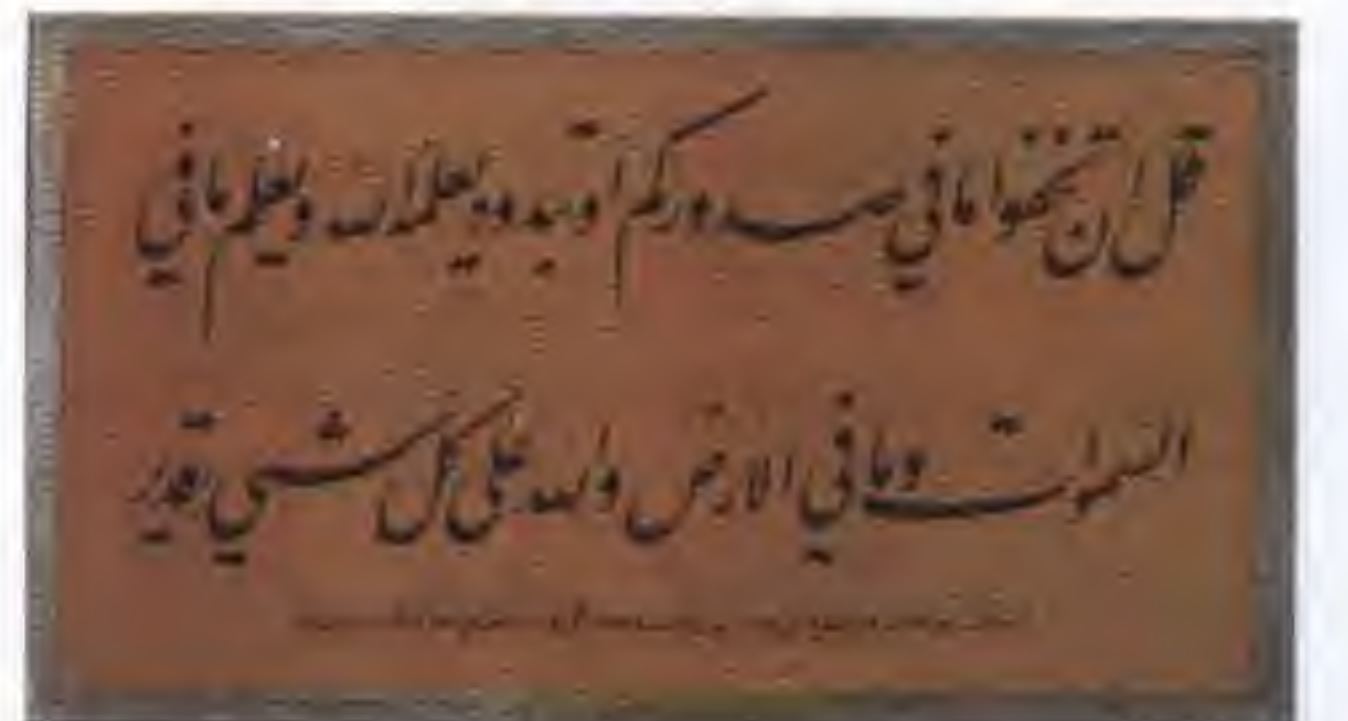 قل ان تخفوا ما في صدوركم او تبدوه يعلمه الله ويعلم ما في
السموات وما في الارض والله على كل شيء قدير